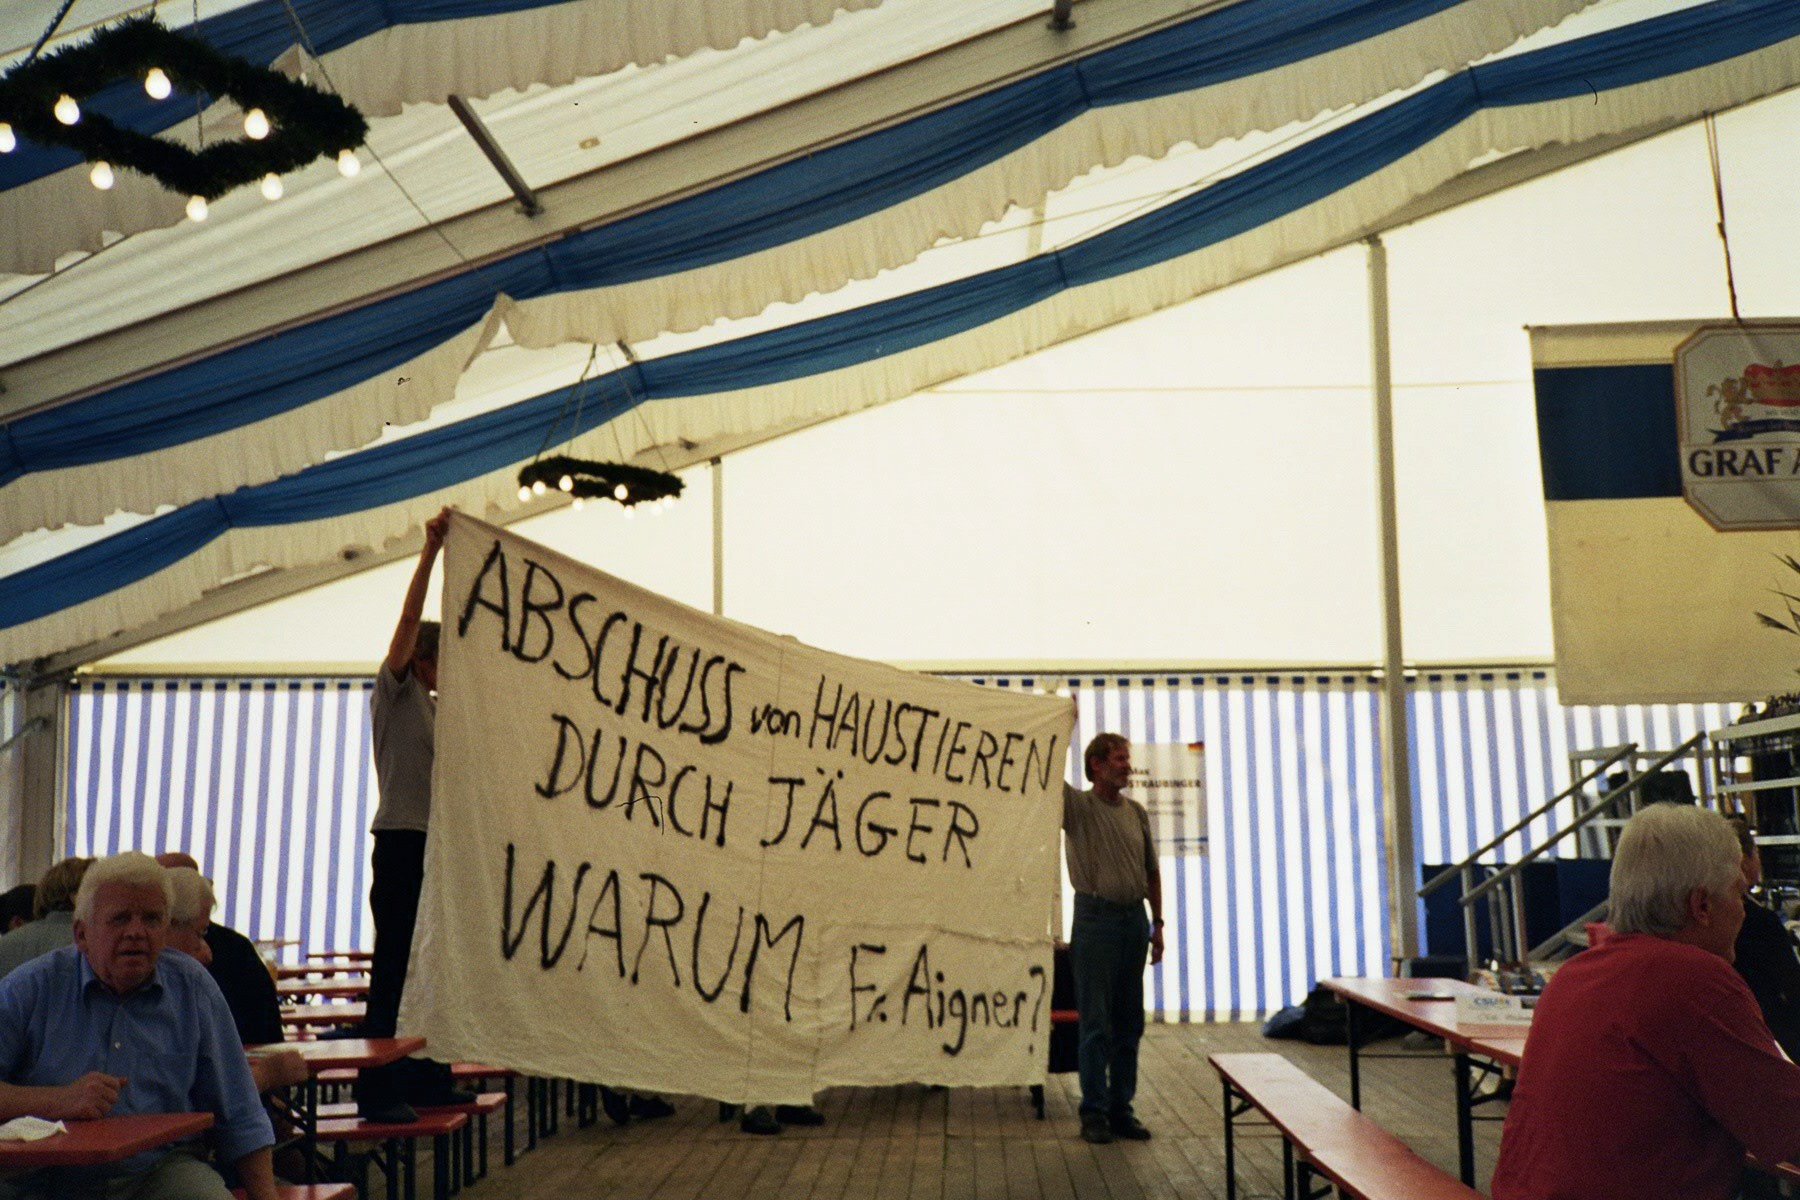 ABSCHUSS von HAUSTIEREN
DURCH JÄGER
WARUM Fr. Aigner?
Max
STRAUBINGER
GRAF A
CSU